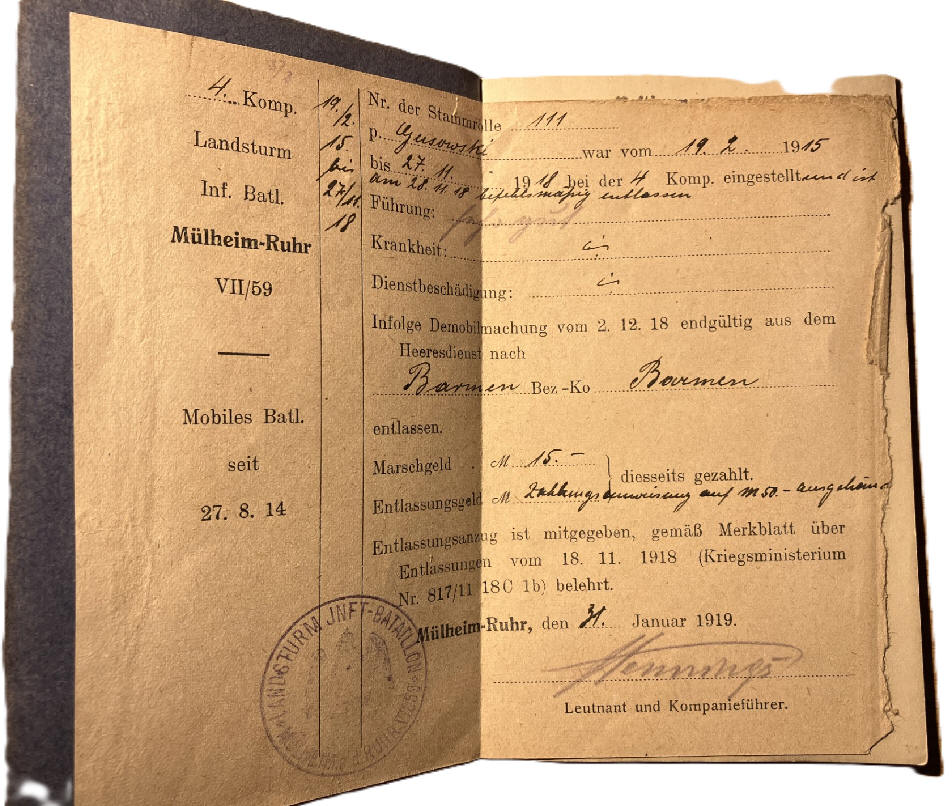 4. Komp.
Landsturm
Inf. Batl.
Mülheim-Ruhr
VII/59
Mobiles Batl.
seit
27. 8. 14
19./2.
15.
bis
27/11.
18
Nr. der Stammrolle 111
p. Gusowski war vom 19. 2. 1915
bis 27. 11. 1918 bei der 4 Komp. eingestellt und ist
am 28 11 18 befehlsmäßig entlassen
Führung: sehr gut
Krankheit:
Dienstbeschädigung:
Infolge Demobilmachung vom 2. 12. 18 endgültig aus dem
Heeresdienst nach
Barmen Bez-Ko Barmen
entlassen.
Marschgeld . M 15.- } diesseits gezahlt.
Entlassungsgeld M Zahlungsanweisung auf M 50.-
Entlassungsanzug ist mitgegeben, gemäß Merkblatt über
Entlassungen vom 18. 11. 1918 (Kriegsministerium
Nr. 817/11 18C 1b) belehrt.
Mülheim-Ruhr, den 31. Januar 1919.
Hennings
Leutnant und Kompanieführer.
LANDSTURM JNFT-BATAILLON